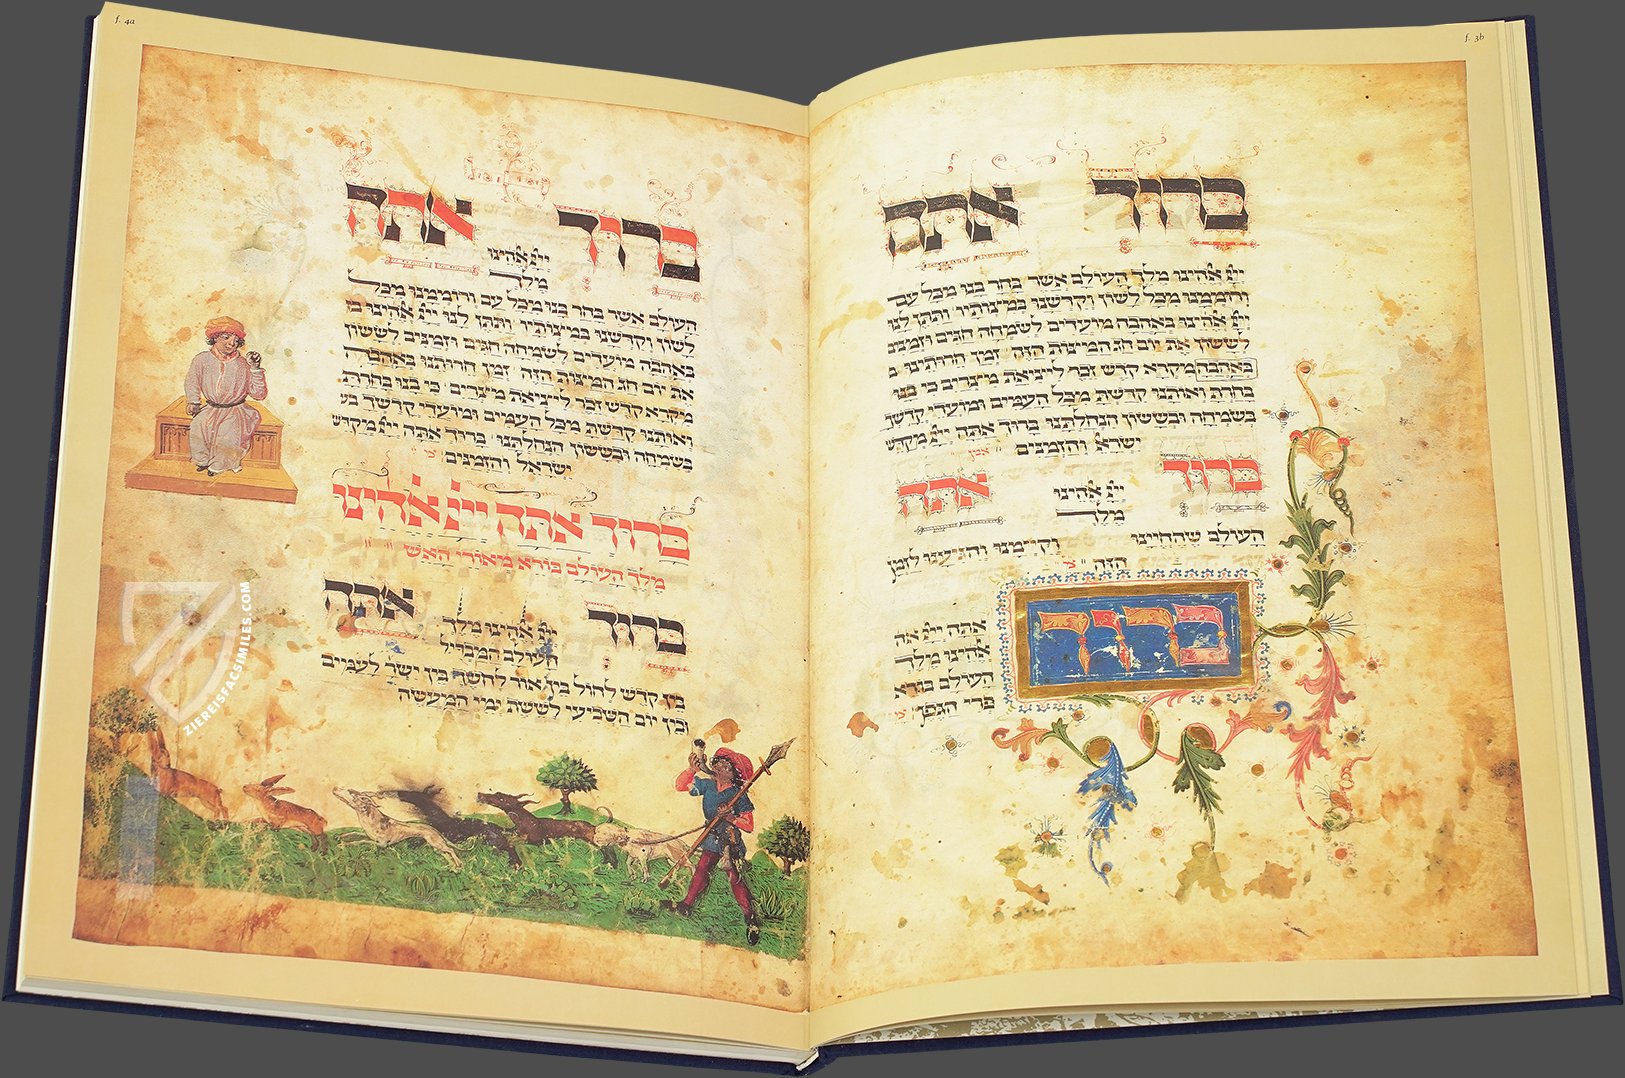 f. 3b
ברוך אתה
ייי אלהינו מלך העולם אשר בחר בנו מכל עם
ורוממנו מכל לשון וקדשנו במצותיו ותתן לנו
ייי אלהינו באהבה מועדים לשמחה חגים וזמנים
לששון את יום חג המצות הזה זמן חרותינו ב
באהבה מקרא קדש זכר ליציאת מצרים כי בנו
בחרת ואותנו קדשת מכל העמים ומועדי קדשך
בשמחה ובששון הנחלתנו ברוך אתה ייי מקדש
ישראל והזמנים אמן
ברוך ייי אלהינו אתה
מלך
העולם שהחיינו וקיימנו והגיענו לזמן
הזה
ברוך אתה ייי
אלהינו מלך
העולם בורא
פרי הגפן
f. 4a
ברוך אתה
ייי אלהינו
מלך
העולם אשר בחר בנו מכל עם ורוממנו מכל
לשון וקדשנו במצותיו ותתן לנו ייי אלהינו
באהבה מועדים לשמחה חגים וזמנים לששון
את יום חג המצות הזה זמן חרותנו באהבה
מקרא קדש זכר ליציאת מצרים כי בנו בחרת
ואותנו קדשת מכל העמים ומועדי קדשך
בשמחה ובששון הנחלתנו ברוך אתה ייי מקדש
ישראל והזמנים
ברוך אתה ייי אלהינו
מלך העולם בורא מאורי האש
ברוך אתה
ייי אלהינו מלך
העולם המבדיל
בין קדש לחול בין אור לחשך בין ישר לעמים
ובין יום השביעי לששת ימי המעשה
ZIEREISFACSIMILES.COM